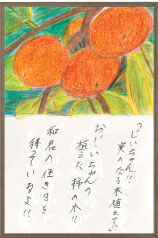 「じいちゃん!!
実のなる木植えて」
おじいちゃんの
植えた、柿の木!!
和尼の使命日を
待っているよ!!